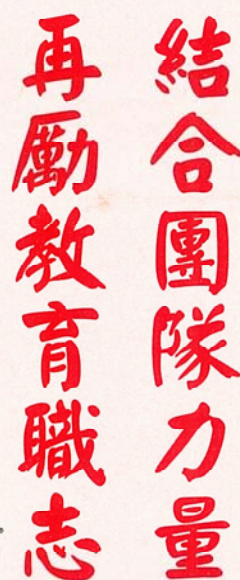 結合團隊力量
再勵教育職志